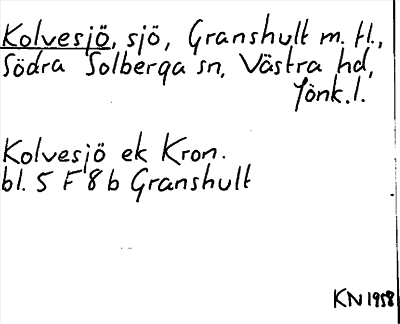 Kolvesjö, sjö, Granshult m. fl.,
Södra Solberga sn, Västra hd,
Jönk.l.
Kolvesjö ek Kron.
bl. 5 F 8 b Granshult
KN 1958